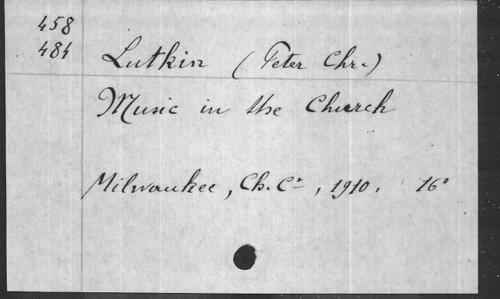 458
484
Lutkin (Peter Chr.)
Music in the Church
Milwaukee, Ch. Cº, 1910. 16º